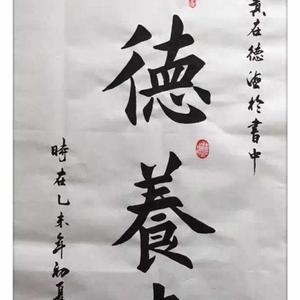 在德州於書中
德養
時在乙未年初夏